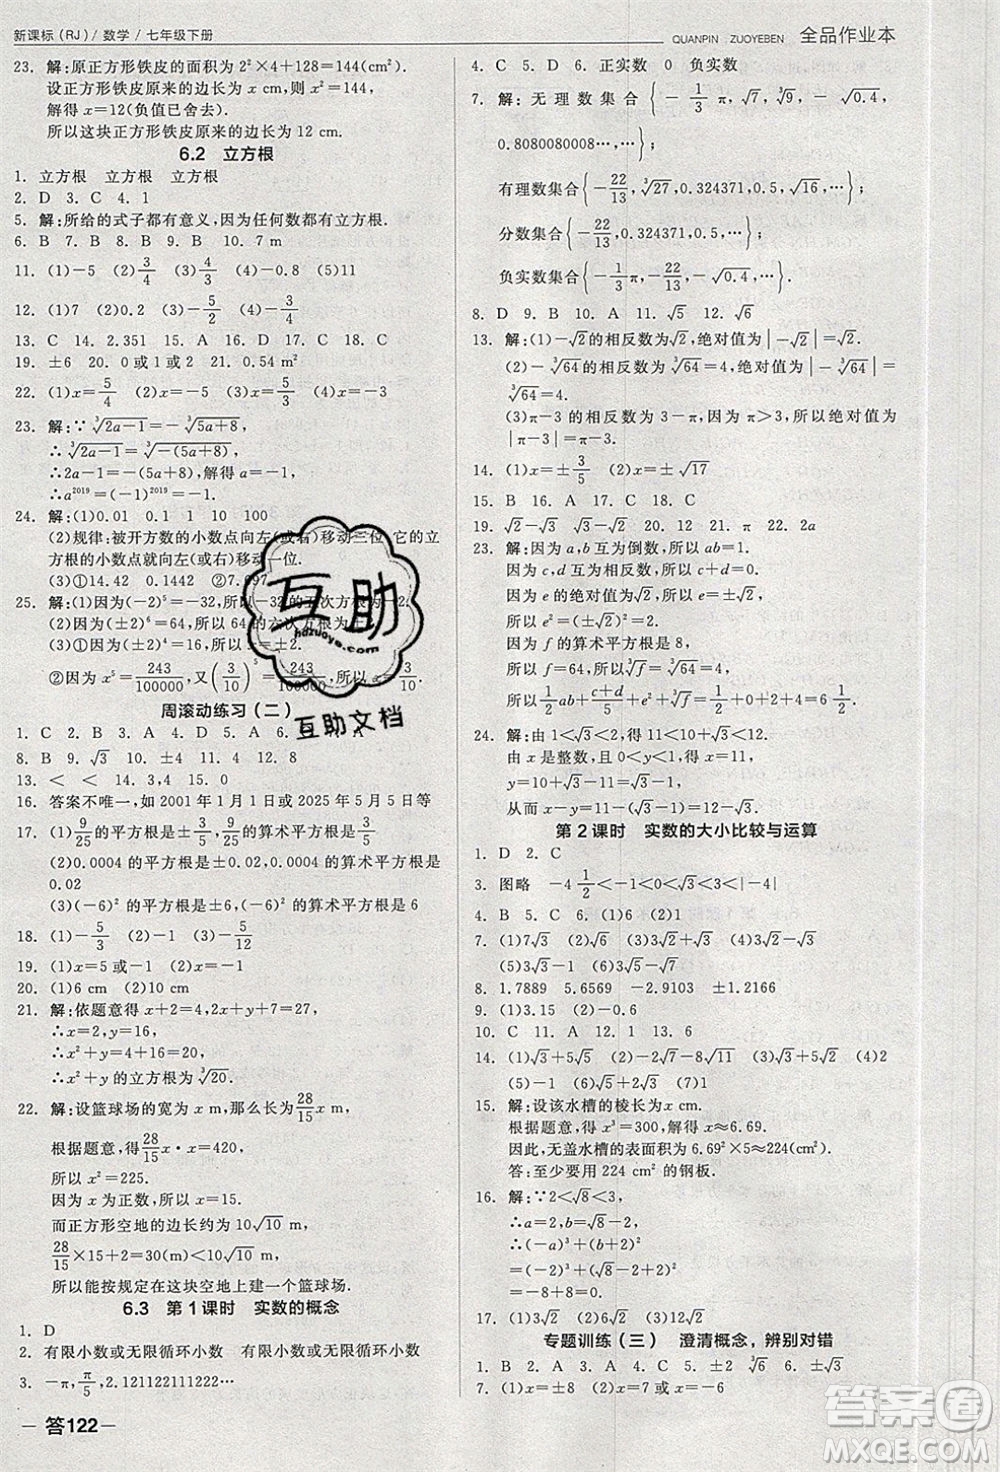 新课标(RJ)/数学/七年级下册
QUANPIN ZUOYEBEN 全品作业本
23. 解:原正方形铁皮的面积为 2²×4+128=144(cm²).
设正方形铁皮原来的边长为 x cm,则 x²=144,
解得 x=12(负值已舍去).
所以这块正方形铁皮原来的边长为 12 cm.
6.2 立方根
1. 立方根 立方根 立方根
2. D 3. C 4. 1
5. 解:所给的式子都有意义,因为任何数都有立方根.
6. B 7. B 8. B 9. B 10. 7 m
11. (1)-5 (2)3/4 (3)-4 (4)-0.6 (5)11
12. (1)7 (2)0.2 (3)-5/2 (4)-3/4
13. C 14. 2.351 15. A 16. D 17. C 18. C
19. ±6 20. 0 或 1 或 2 21. 0.54 m²
22. (1)x=5/4 (2)x=-5 (3)x=5/4 (4)x=-6
23. 解:∵∛(2a-1)=-∛(5a+8),
∴∛(2a-1)=∛(-(5a+8)),
∴2a-1=-(5a+8),解得 a=-1,
∴a²⁰¹⁹=(-1)²⁰¹⁹=-1.
24. 解:(1)0.01 0.1 1 10 100
(2)规律:被开方数的小数点向左(或右)移动三位,它的立
方根的小数点就向左(或右)移动一位.
(3)①14.42 ②0.1442 ③7.697
25. 解:(1)因为(-2)⁵=-32,所以-32的五次方根是-2.
(2)因为(±2)⁶=64,所以64的六次方根为±2.
(3)①因为(±2)⁴=16,所以 x=±2.
②因为 x⁵=243/100000,又(3/10)⁵=243/100000,所以 x=3/10.
周滚动练习(二)
1. C 2. B 3. A 4. D 5. A
8. B 9. B 10. √3 11. ±4 12. 2
13. < < 14. 3.4 15. -4
16. 答案不唯一,如 2001 年 1 月 1 日或 2025 年 5 月 5 日等
17. (1)9/25的平方根是±3/5,9/25的算术平方根是3/5
(2)0.0004 的平方根是±0.02,0.0004 的算术平方根是
0.02
(3)(-6)²的平方根是±6,(-6)²的算术平方根是 6
18. (1)-5/3 (2)-4 (3)2/3
19. (1)x=5 或-1 (2)x=-4
20. (1)6 cm (2)10 cm
21. 解:依题意得 x+2=4,2x+y+7=27,
∴x=2,y=16,
∴x²+y²=4+16=20,
∴x²+y 的立方根为∛20.
22. 解:设篮球场的宽为 x m,那么长为28/15x m,
根据题意,得28/15x·x=420,
所以 x²=225.
因为 x 为正数,所以 x=15.
而正方形空地的边长约为 10√10 m,
28/15×15+2=30(m)<10√10 m,
所以能按规定在这块空地上建一个篮球场.
6.3 第 1 课时 实数的概念
1. D
2. 有限小数或无限循环小数 有限小数或无限循环小数
3. -π,π/5,2.121122111222…
答122
4. C 5. D 6. 正实数 0 负实数
7. 解:无理数集合{-1/3π,√7,∛9,-√0.4,
0.8080080008…,…};
有理数集合{-22/13,∛27,0.324371,0.5,√16,…};
分数集合{-22/13,0.324371,0.5,…};
负实数集合{-1/3π,-22/13,-√0.4,…}.
8. D 9. B 10. A 11. √5 12. √6
13. 解:(1)-√2的相反数为√2,绝对值为|-√2|=√2.
(2)-∛64的相反数为∛64=4,绝对值为|-∛64|=
∛64=4.
(3)π-3 的相反数为 3-π,因为 π>3,所以绝对值为
|π-3|=π-3.
14. (1)x=±3/5 (2)x=±√17
15. B 16. A 17. C 18. C
19. √2-√3 √3-√2 20. 12 21. π 22. 2a
23. 解:因为 a,b 互为倒数,所以 ab=1.
因为 c,d 互为相反数,所以 c+d=0.
因为 e 的绝对值为√2,所以 e=±√2,
所以 e²=(±√2)²=2.
因为 f 的算术平方根是 8,
所以 f=64,所以∛f=∛64=4,
所以1/2ab+(c+d)/5+e²+∛f=1/2+0+2+4=6 1/2.
24. 解:由 1<√3<2,得 11<10+√3<12.
由 x 是整数,且 0<y<1,得 x=11,
y=10+√3-11=√3-1,
从而 x-y=11-(√3-1)=12-√3.
第 2 课时 实数的大小比较与运算
1. D 2. C
3. 图略 -4 1/2<-1<0<√3<2<|-4|
4. B 5. C 6. (1)6 (2)1
7. (1)7√3 (2)√3 (3)2√2+√3 (4)-√3
(5)3√2-√3 (6)-3/2
8. 1.7889 5.6569 -1.2599 ±1.2166
9. (1)3.15 (2)-0.6
10. C 11. A 12. 1 13. 6
14. (1)√3+5√5 (2)-7-8√11 (3)4√2 (4)2
(5)1+√2 (6)5
15. 解:设该水槽的棱长为 x cm.
根据题意,得 x³=300,解得 x≈6.69.
因此,无盖水槽的表面积为 6.69²×5≈224(cm²).
答:至少要用 224 cm² 的钢板.
16. 解:∵2<√8<3,
∴a=2,b=√8-2,
∴(-a)³+(b+2)²
=(-2)³+(√8-2+2)²
=-8+8=0.
17. (1)3√2 (2)3√3 (3)13√2 (4)13√3
专题训练(三) 澄清概念,辨别对错
1. B 2. C 3. D 4. -4 5. ±2 ∛2 6. B
7. (1)x=±8 (2)x=4 或 x=-2
互助
hdzuoye.com
互助文档
答案圈
MXQE.COM